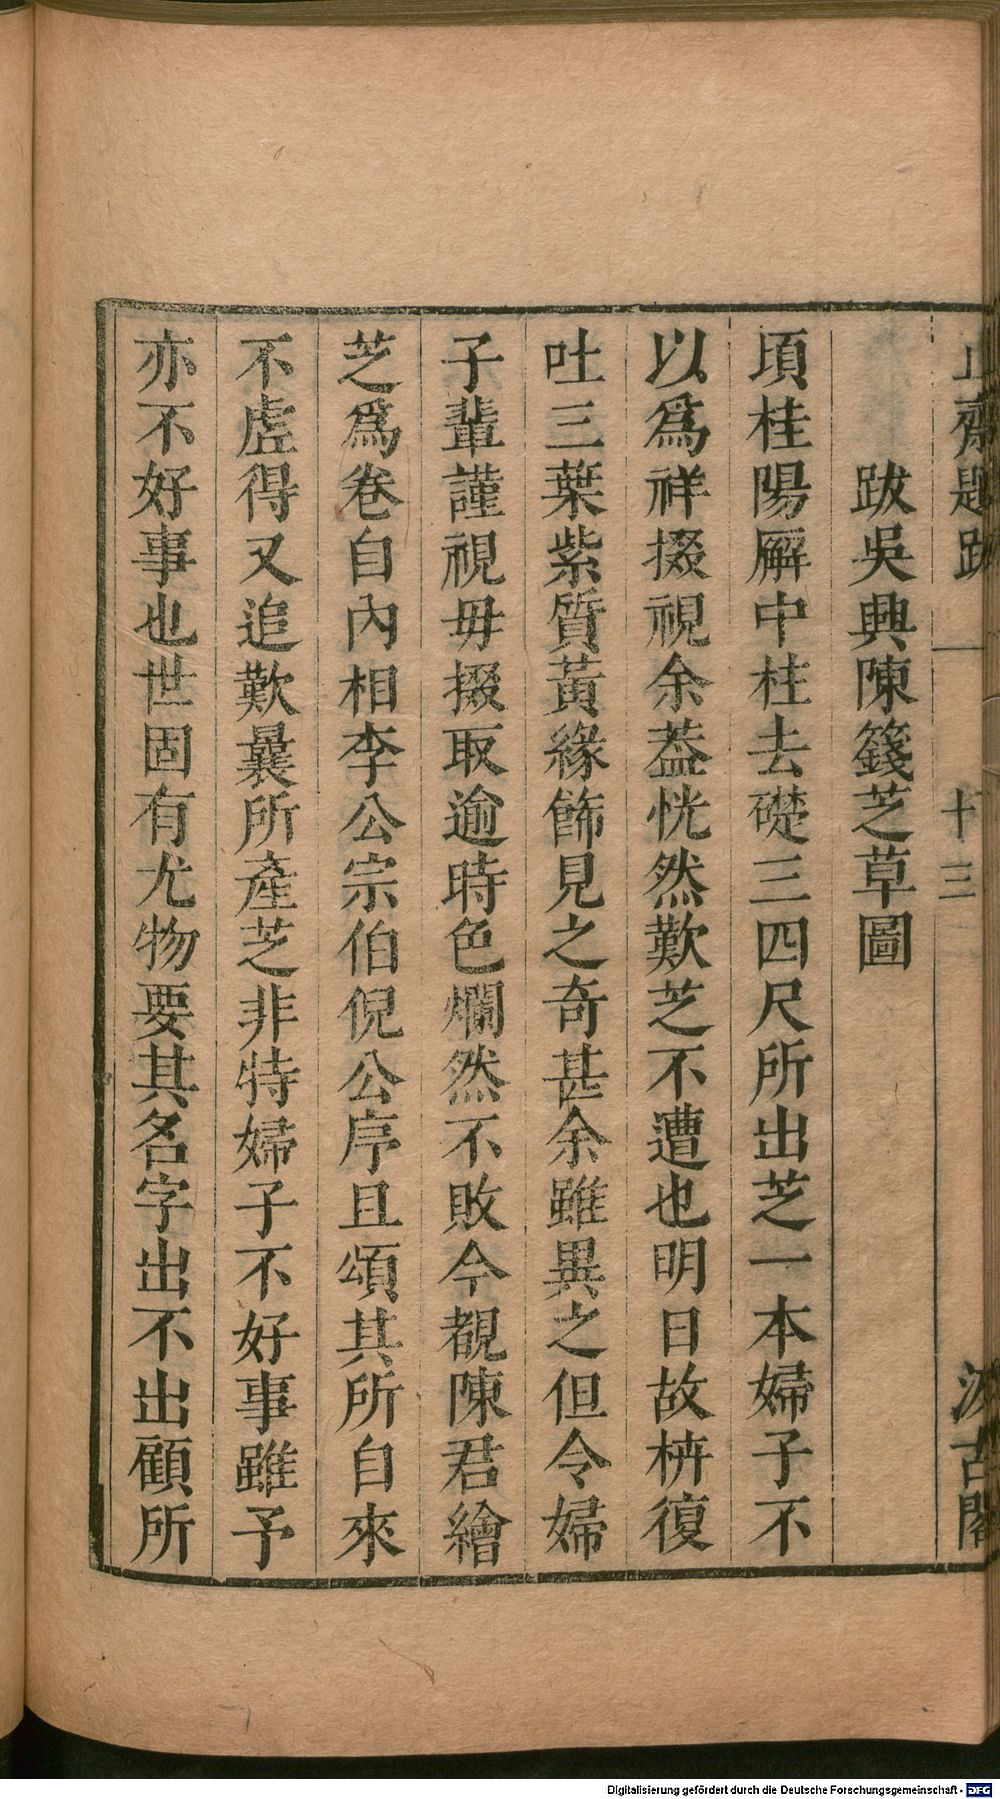 止齋題跋 十三 汲古閣
跋吳興陳籛芝草圖
頃桂陽廨中桂去礎三四尺所出芝一本婦子不
以爲祥掇視余葢恍然歎芝不遭也明日故枿復
吐三葉紫質黃緣飾見之奇甚余雖異之但令婦
子輩謹視毋掇取逾時色爛然不敗今覩陳君繪
芝爲卷自內相李公宗伯倪公序且頌其所自來
不虛得又追歎曩所產芝非特婦子不好事雖予
亦不好事也世固有尤物要其名字出不出顧所
Digitalisierung gefördert durch die Deutsche Forschungsgemeinschaft - DFG